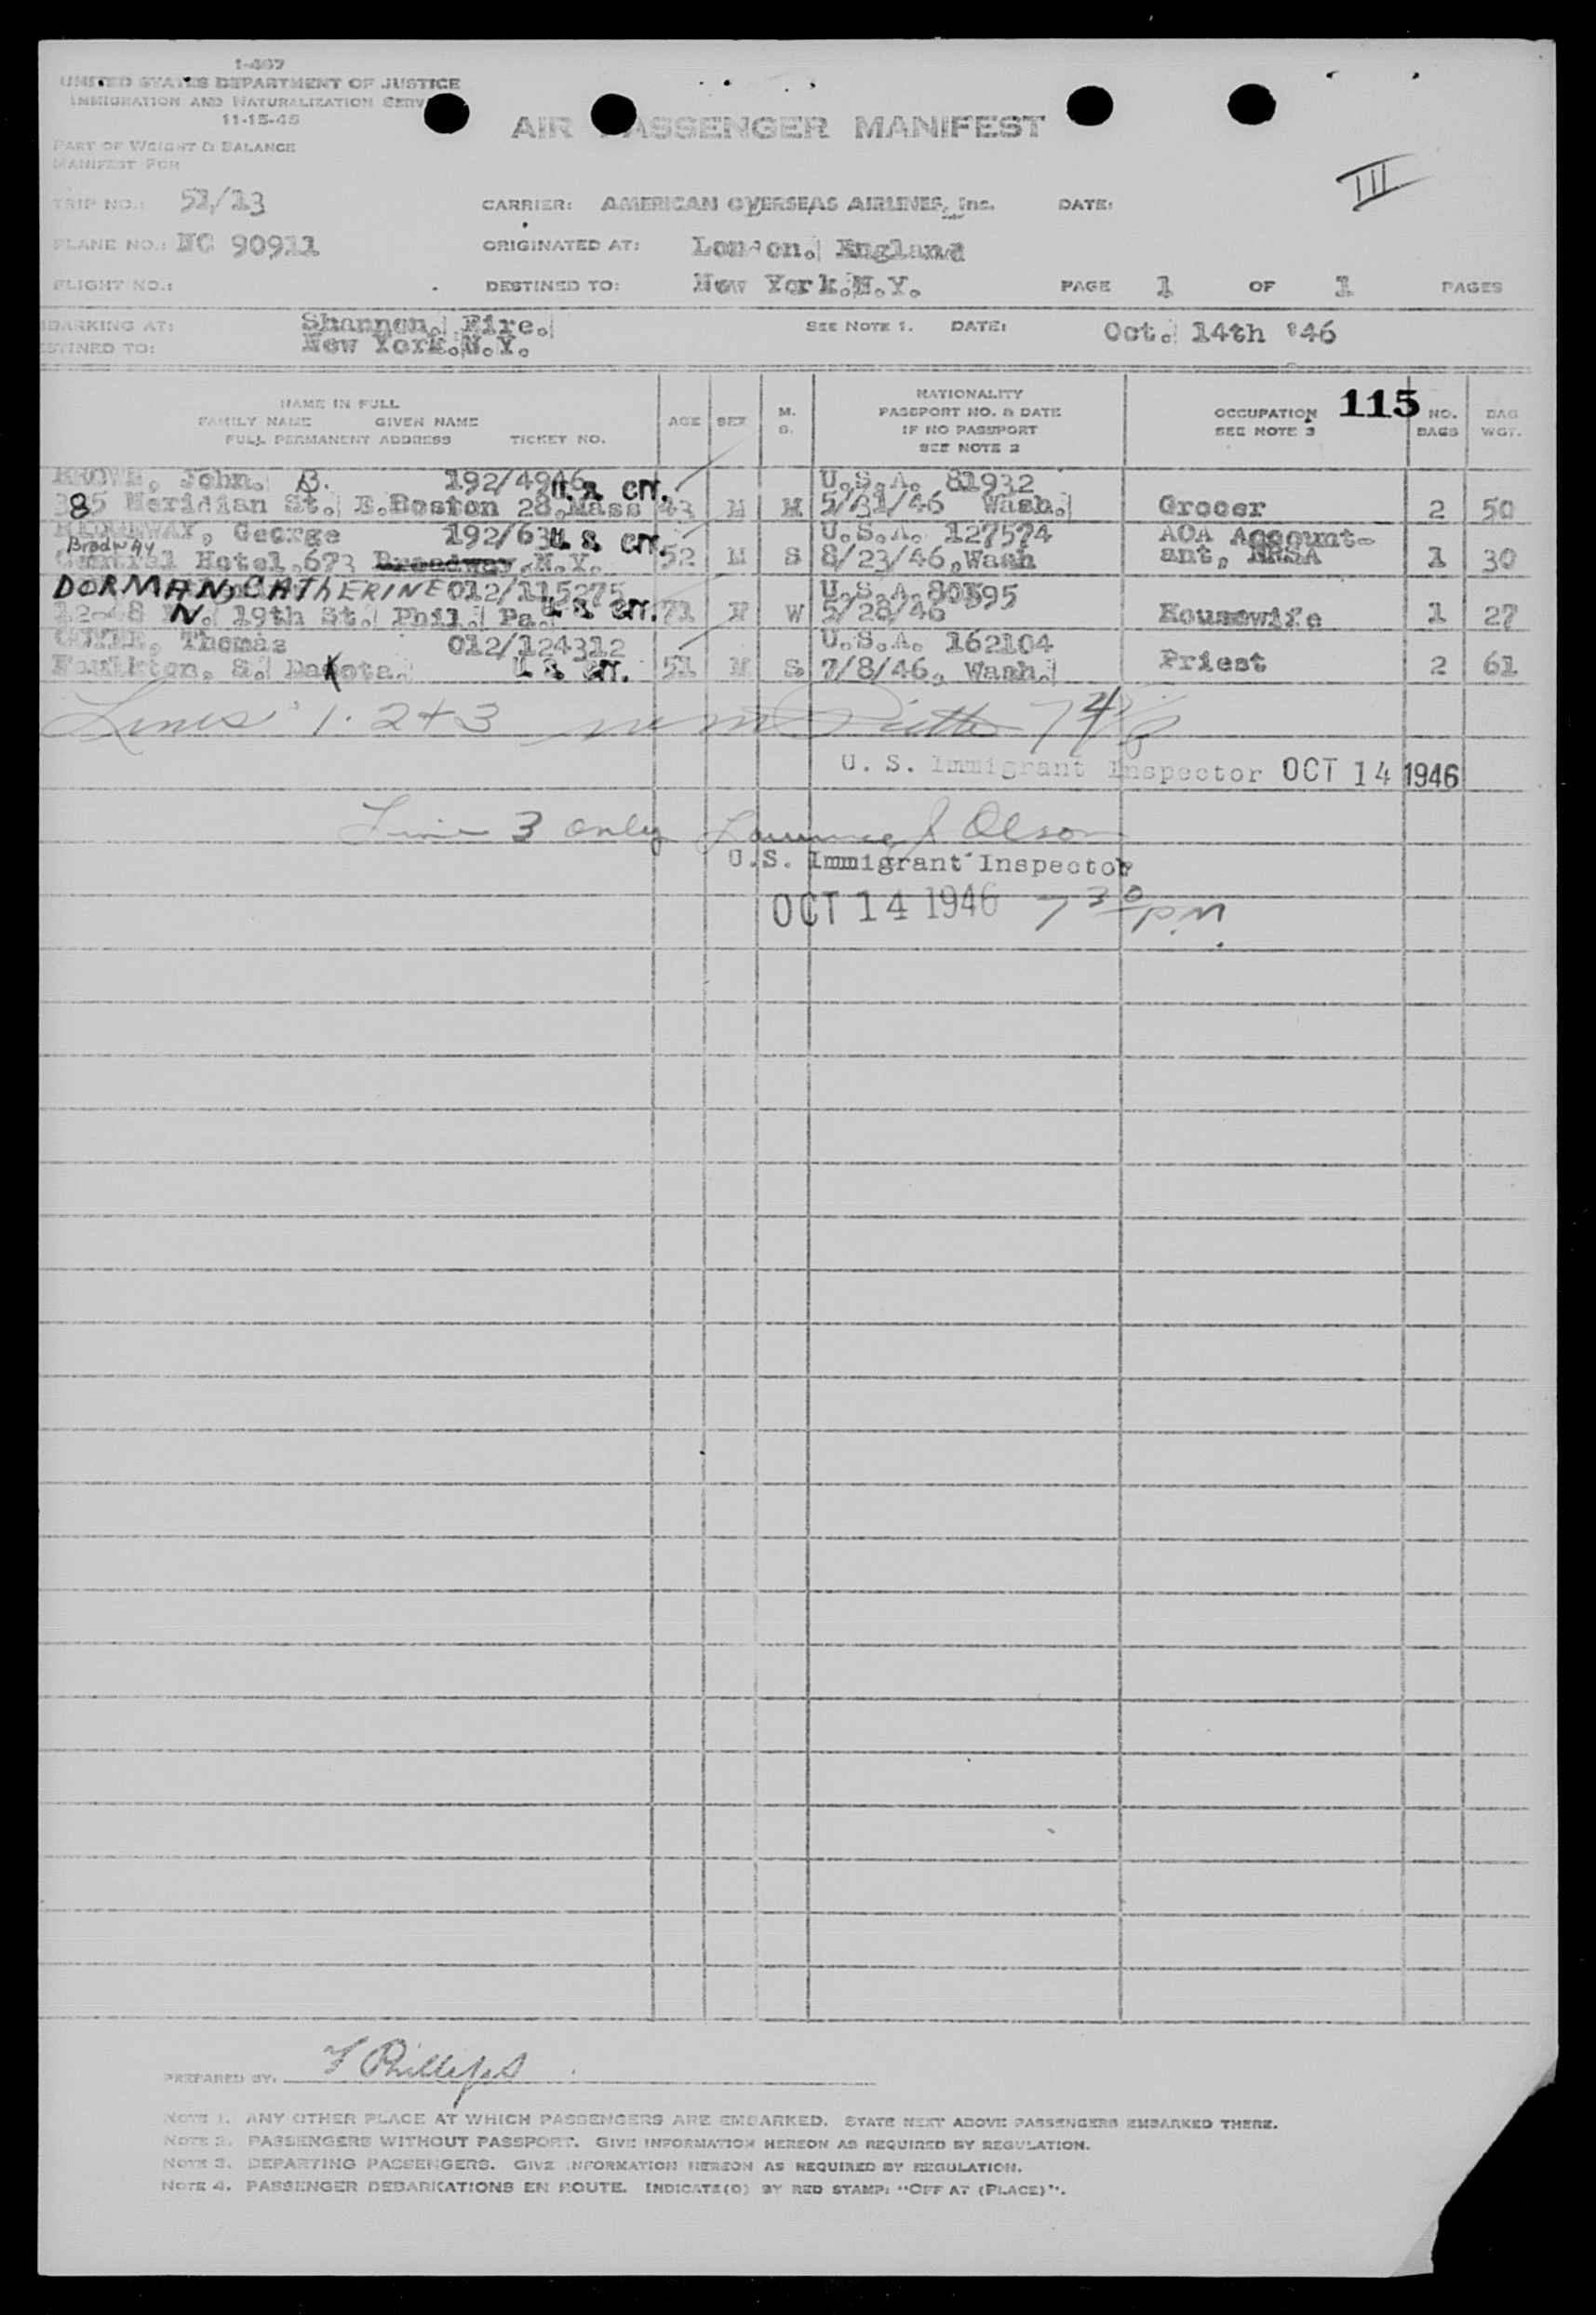 1-467
UNITED STATES DEPARTMENT OF JUSTICE
IMMIGRATION AND NATURALIZATION SERV
11-15-45
AIR PASSENGER MANIFEST
PART OF WEIGHT & BALANCE
MANIFEST FOR
III
TRIP NO.: 51/13 CARRIER: AMERICAN OVERSEAS AIRLINES, Inc. DATE:
PLANE NO.: NC 90911 ORIGINATED AT: London. England
FLIGHT NO.: DESTINED TO: New York.N.Y. PAGE 1 OF 1 PAGES
BARKING AT: Shannon. Eire. SEE NOTE 1. DATE: Oct. 14th '46
STINED TO: New York.N.Y.
NAME IN FULL
FAMILY NAME GIVEN NAME
FULL PERMANENT ADDRESS TICKET NO.
AGE SEX M. S.
NATIONALITY
PASSPORT NO. & DATE
IF NO PASSPORT
SEE NOTE 2
OCCUPATION
SEE NOTE 3
115
NO. BAGS
BAG WGT.
John. B. 192/4946 U.S.A. 81932
385 Meridian St. E.Boston 28.Mass U. S. CIT. 43 M M 5/31/46 Wash. Grocer 2 50
RIDGEWAY, George 192/63 U. S. CIT. U.S.A. 127574 AOA Account-
BrodwAy
Central Hotel,673 Broadway.N.Y. 52 M S 8/23/46,Wash ant, 1 30
DORMAN, CATHERINE 012/115275 U.S.A.
N. 19th St. Phil. Pa. U. S. CIT. 71 F W 5/28/46 Housewife 1 27
Thomas 012/124312 U.S.A. 162104
S. Dakota. U. S. CIT. 51 M S. 7/8/46, Wash. Priest 2 61
Lines 1. 2 + 3
U. S. Immigrant Inspector OCT 14 1946
Line 3 only Lawrence J Olson
U.S. Immigrant Inspector
OCT 14 1946 7 30 P.M.
PREPARED BY. F Phillips
NOTE 1. ANY OTHER PLACE AT WHICH PASSENGERS ARE EMBARKED. STATE NEXT ABOVE PASSENGERS EMBARKED THERE.
NOTE 2. PASSENGERS WITHOUT PASSPORT. GIVE INFORMATION HEREON AS REQUIRED BY REGULATION.
NOTE 3. DEPARTING PASSENGERS. GIVE INFORMATION HEREON AS REQUIRED BY REGULATION.
NOTE 4. PASSENGER DEBARKATIONS EN ROUTE. INDICATE(D) BY RED STAMP: "OFF AT (PLACE)".